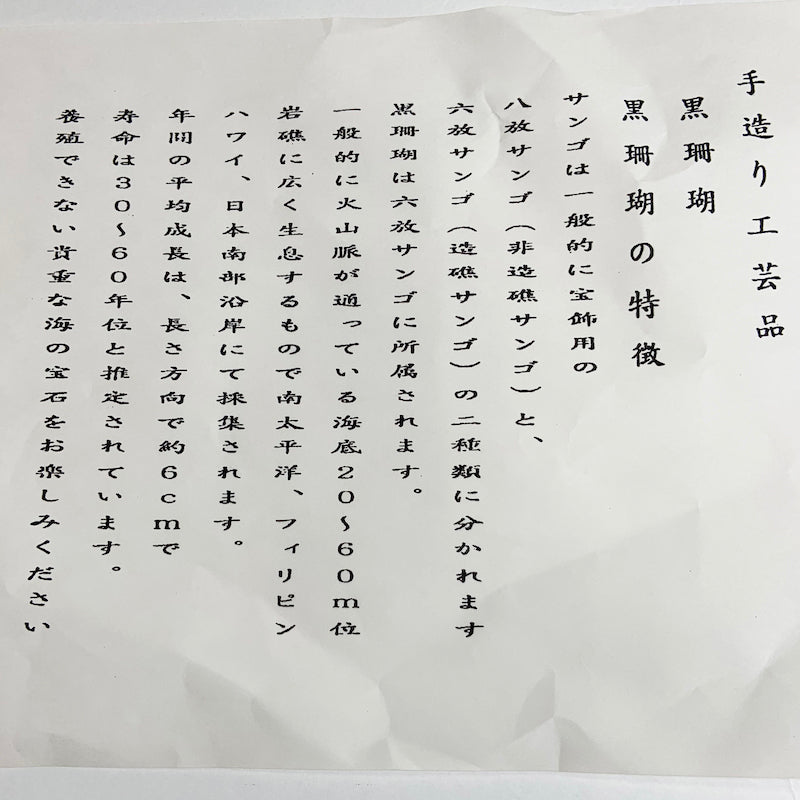 手造り工芸品
黒珊瑚
黒珊瑚の特徴
サンゴは一般的に宝飾用の
八放サンゴ(非造礁サンゴ)と、
六放サンゴ(造礁サンゴ)の二種類に分かれます
黒珊瑚は六放サンゴに所属されます。
一般的に火山脈が通っている海底20〜60m位
岩礁に広く生息するもので南太平洋、フィリピン
ハワイ、日本南部沿岸にて採集されます。
年間の平均成長は、長さ方向で約6cmで
寿命は30〜60年位と推定されています。
養殖できない貴重な海の宝石をお楽しみください